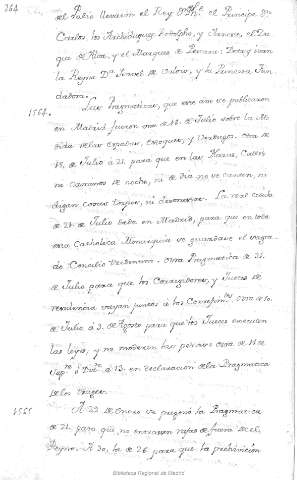 264
del Palio llevaron el Rey Dn. Phe. el Principe Dn.
Carlos los Archiduques Rodolpho, y Ernesto, el Du-
que de Alva, y el Marques de Pescara: Detras iban
la Reyna Da. Isavel de Valois, y la Princesa Fun-
dadora.
1564. Las Pragmaticas, que este año se publicaron
en Madrid fueron una de 18. de Julio sobre la Me-
dida de las espadas, estoques, y Verdugos. Otra de
18. de Julio á 21. para que en las Plazas, Calles
ni Caminos de noche, ni de dia no se canten, ni
digan cosas torpes, ni deshonestas. La real cedula
de 24. de Julio dada en Madrid, para que en toda
esta Catholica Monarquia se guardase el sagra-
do Concilio Tridentino. Otra Pragmatica de 21.
de Julio para que los Corregidores, y Jueces de
residencia vayan juntos a los
de Julio á 3. de Agosto para que los Jueces executen
las leyes, y no moderen las penas. Otra de 11. de
Sepre. á 13. en declaracion de la Pragmatica
de los trages.
1565 A 23. de Enero se pregonó la Pragmatica
de 21. para que no entrasen ropas de fuera de el
Reyno. A 30. la de 26. para que la prohivicion
Biblioteca Regional de Madrid